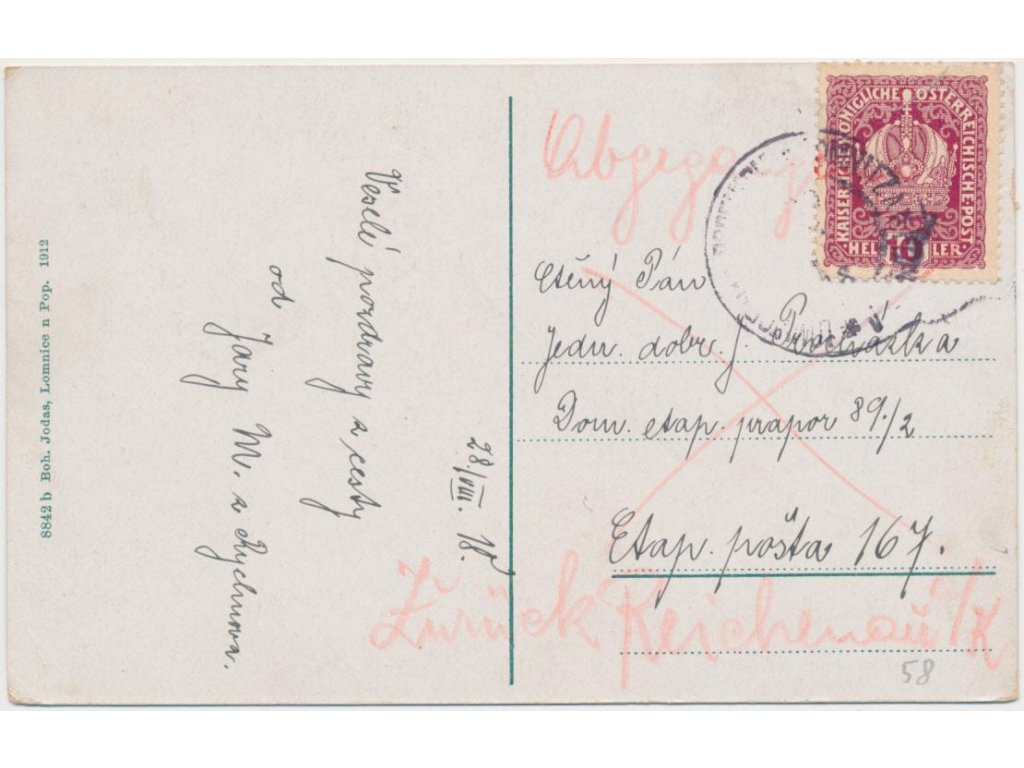 8842 b Boh. Jodas, Lomnice n Pop. 1912
Veselé pozdravy z cesty
od
Jary M. z Rychnova.
28./VIII. 18.
KAISERLICHE KÖNIGLICHE ÖSTERREICHISCHE POST
HELLER
10
Ctěný Pán
Jedn. dobr. J. Procházka
Dom. etap. prapor 89./2
Etap. pošta 167.
Zurück Reichenau a/K
58